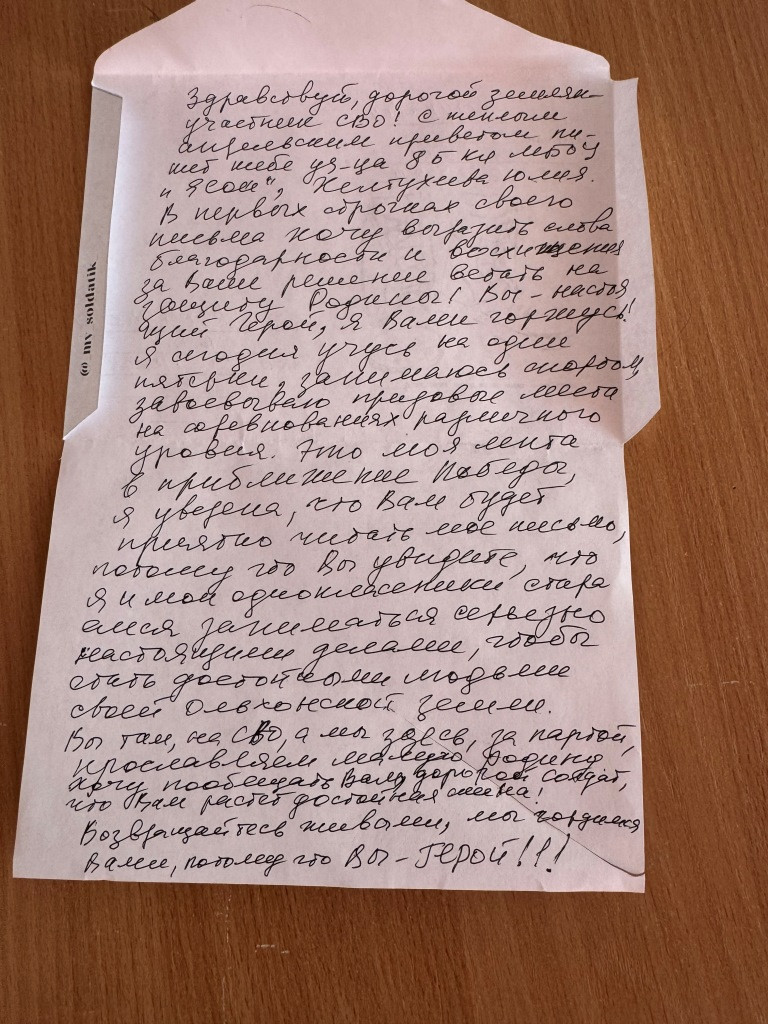 @ my_soldatik
Здравствуй, дорогой земляк-
участник СВО! С тёплым
ангельским приветом пи-
шет тебе уч-ца 8Б кл МБОУ
„ЯСОШ", Желтухеева Юлия.
В первых строчках своего
письма хочу выразить слова
благодарности и восхищения
за Ваше решение встать на
защиту Родины! Вы - настоя
щий Герой, я Вами горжусь!
Я сегодня учусь на одни
пятёрки, занимаюсь спортом,
завоёвываю призовые места
на соревнованиях различного
уровня. Это моя лепта
в приближение Победы,
я уверена, что Вам будет
приятно читать моё письмо,
потому что Вы увидите, что
я и мои одноклассники стара
емся заниматься серьёзно
настоящими делами, чтобы
стать достойными людьми
своей Ольхонской земли.
Вы там, на СВО, а мы здесь, за партой,
прославляем малую Родину
хочу пообещать Вам, дорогой солдат,
что Вам растёт достойная смена!
Возвращайтесь живыми, мы гордимся
Вами, потому что Вы - Герой!!!